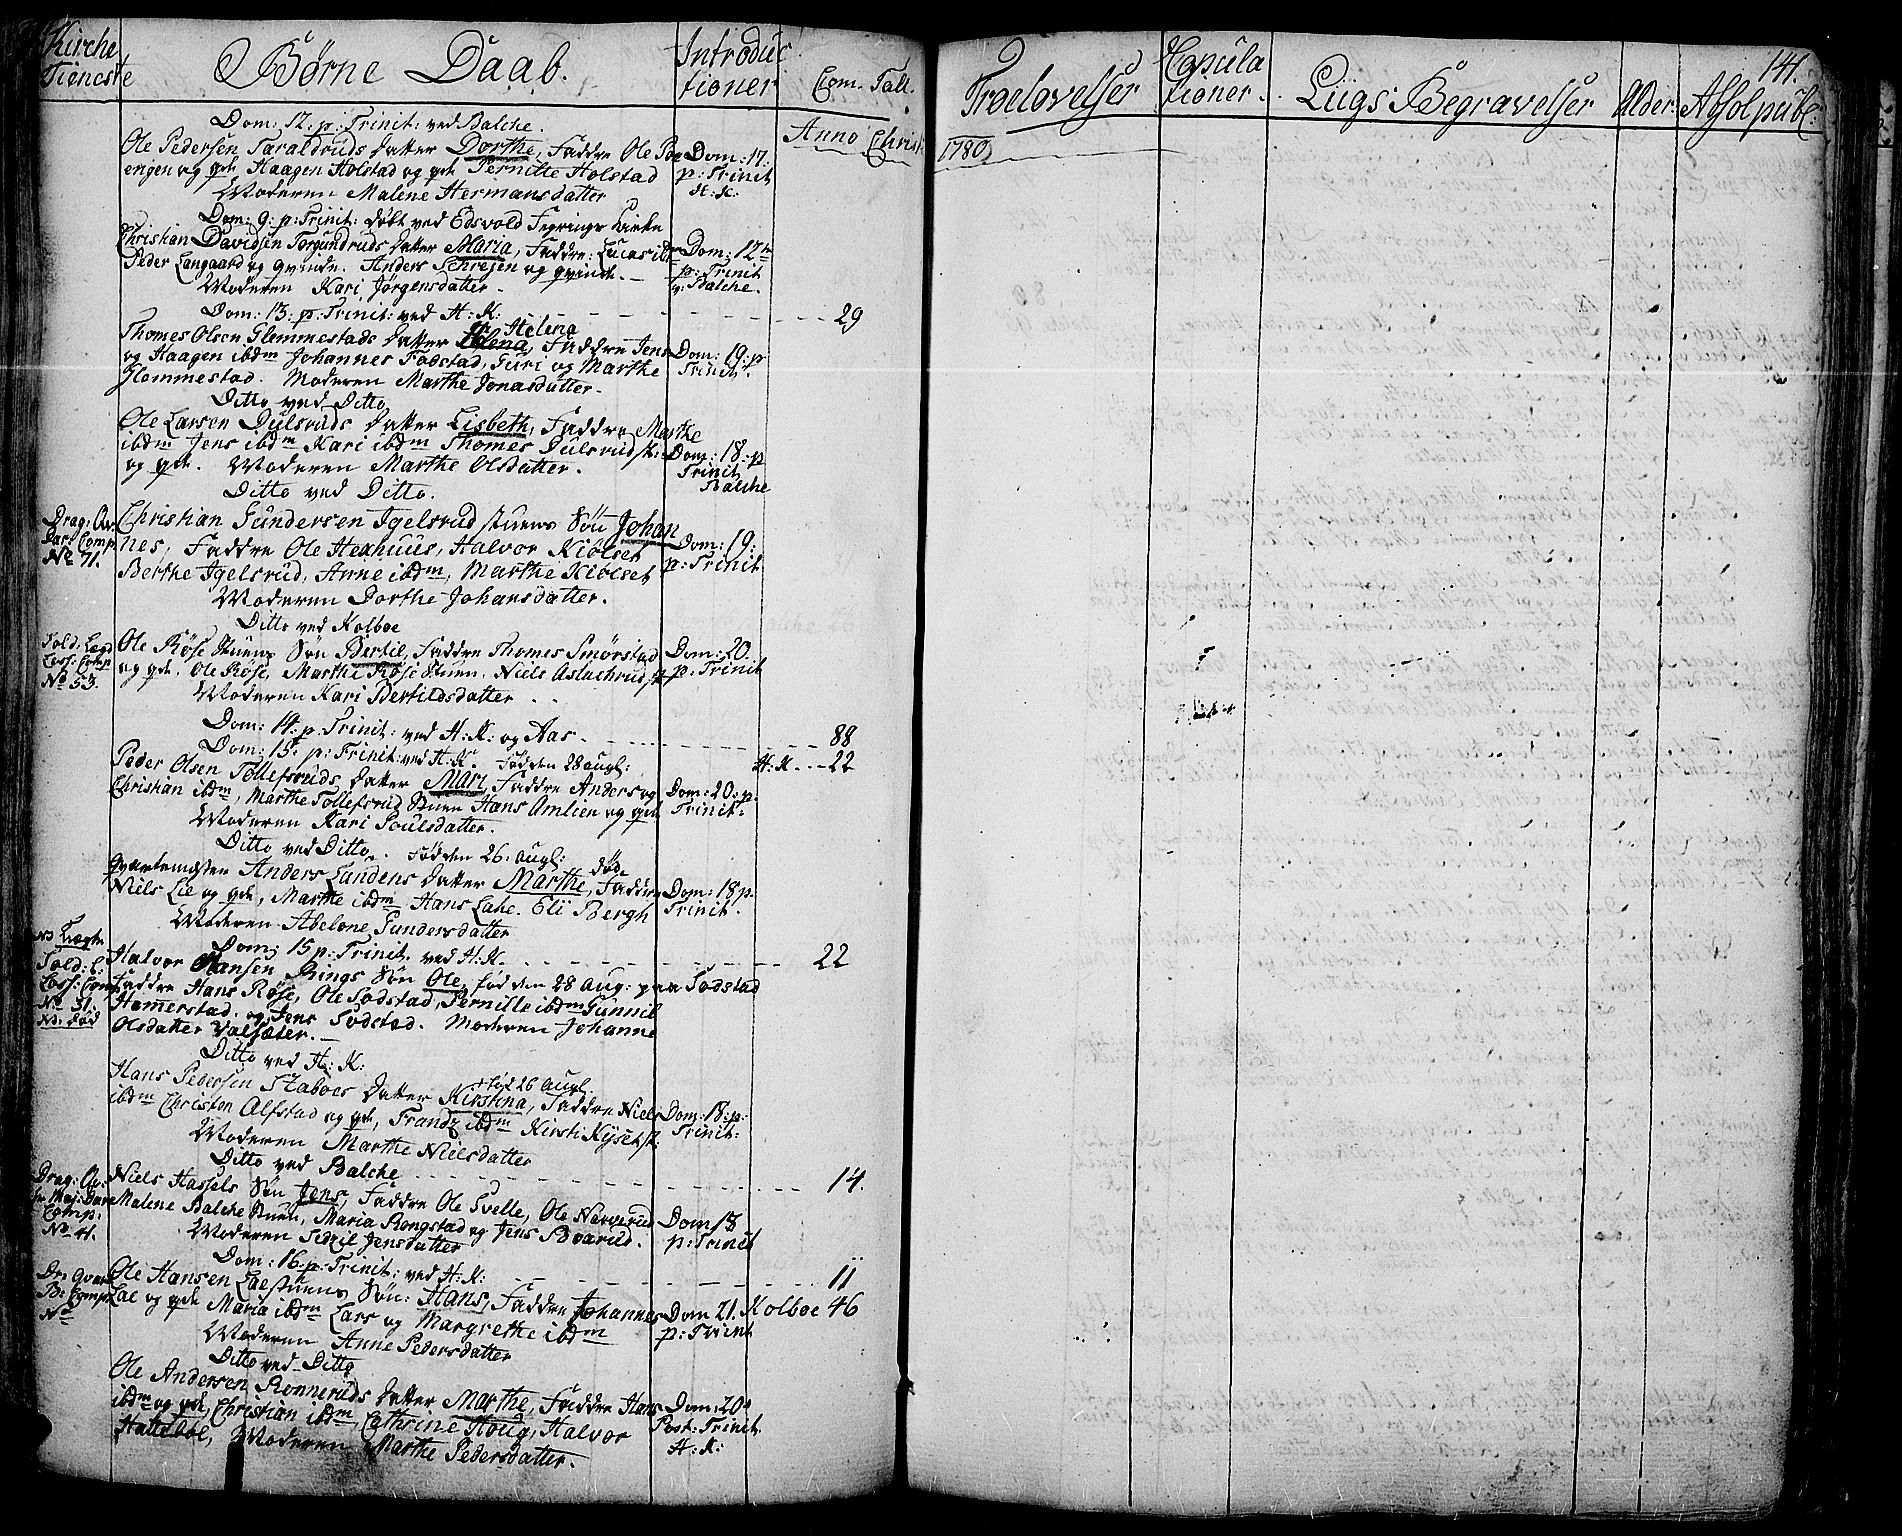 Kirche Tieneste
Børne Daab.
Introductioner
Com. Tall.
Troelovelser
Copulationer.
Liigs Begravelser
Alder
Absol publ:
141.
Anno Christi
1780
Dom: 12. p: Trinit: ved Balche.
Ole Pedersen Taraldruds datter Dorthe, Faddre Ole Poe
engen og qde Haagen Holstad og qde Pernille Holstad
Moderen Malene Hermansdatter
Dom: 17. p: Trinit H: K:
Dom: 9: p: Trinit: døbt ved Edsvold Kirke
Christian Davidsen Torgundruds datter Maria, Faddre: Lucas ibm
Peder Langaard og qvinde. Anders Schrejen og qvinde.
Moderen Kari Jørgensdatter.
Dom: 12te p: Trinit v: Balche.
Dom: 13. p: Trinit: ved H: K: 29
Helena
Thomes Olsen Glemmestads datter Helena, Faddre Jens
og Haagen ibdm Johannes Fodstad, Guri og Marthe
Glommestad. Moderen Marthe Jonasdatter.
Dom: 19: p Trinit.
Ditto ved Ditto
Ole Larsen Dulsruds datter Lisbeth, Faddre Marthe
ibdm Jens ibdm Kari ibdm Thomes Dulsrud st:
og qde. Moderen Marthe Olsdatter.
Dom: 18: p Trinit Balche
Ditto ved Ditto.
Drag: Comp No 71.
Christian Gundersen Igelsrud stuens Søn Johan
nes, Faddre Ole Hexhuus, Halvor Kiølset
Berthe Igelsrud, Anne ibdm, Marthe Kiølset
Moderen Dorthe Johansdatter.
Dom: 19: p: Trinit
Ditto ved Kolboe
Sold: Comp No 53.
Ole Røse Stuens Søn Bertil, Faddre Thomes Smørstad
og qde. Ole Røse, Marthe Røse Stuen. Niels Aslachrud st
Moderen Kari Bertilsdatter
Dom: 20. p: Trinit
Dom: 14. p Trinit: ved H: K: og Aas. 88
Dom: 15. p: Trinit: ved H: K. Fød den 28 augl: H: K. 22
Peder Olsen Tollefsruds datter Mari, Faddre Anders og
Christian ibdm, Marthe Tollefsrud Stuen Hans Amlien og qde
Moderen Kari Poulsdatter.
Dom: 20: p: Trinit:
Ditto ved Ditto. Fød den 26: augl: død.
Anders Lundens datter Marthe, Faddre
Niels Lie og qde, Marthe ibdm Hans Lahe. Eli Bergh
Moderen Abelone Gundersdatter
Dom: 18 p: Trinit.
Dom: 15 p: Trinit. ved H: K. 22
Sold: Comp No 31.
Halvor Hansen Rings Søn Ole, fød den 28 Aug: paa Sodstad
Faddre Hans Røse, Ole Sodstad, Pernille ibdm Gunnil
Hamerstad. og Jens Sodstad. Moderen Johanne
Olsdatter Valsæter.
Ditto ved H: K:
fød 26 augl
Hans Pedersen Staboes datter Kirstina, Faddre Niels
ibdm Christen Alfstad og qde, Frandz ibdm Kirsti Kyset st.
Moderen Marthe Nielsdatter
Dom: 18: p: Trinit:
Ditto ved Balche 14.
Drag: Comp. No 41.
Niels Hassels Søn Jens, Faddre Ole Svelle, Ole Narverud
Malene Balche Stuen, Maria Rongstad og Jens Boarud.
Moderen Sidzil Jensdatter
Dom 18 p: Trinit
Dom: 16. p: Trinit: ved H: K: 11
Comp. No
Ole Hansen Lae stuens Søn: Hans, Faddre Johannes
Lae og qde Maria ibdm Lars og Margrethe ibdm
Moderen Anne Pedersdatter
Dom 21. p: Trinit
Kolboe 46
Ditto ved Ditto
Ole Andersen Ronneruds datter Marthe, Faddre Hans
ibdm og qde, Christian ibdm, Cathrine Houg, Halvor
Moderen Marthe Pedersdatter.
Dom: 20. Post: Trinit H: K: